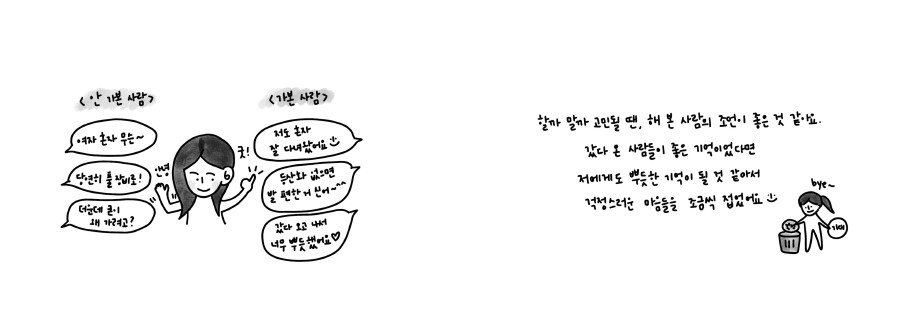 <안 가본 사람>
여자 혼자 무슨~
당연히 풀장비로!
더운데 굳이
왜 가려고?
안녕
<가본 사람>
굿!
저도 혼자
잘 다녀왔어요
등산화 없으면
발 편한 거 신어~^^
갔다 오고 나서
너무 뿌듯했어요♡
할까 말까 고민될 땐, 해 본 사람의 조언이 좋은 것 같아요.
갔다 온 사람들이 좋은 기억이었다면
저에게도 뿌듯한 기억이 될 것 같아서
걱정스러운 마음들을 조금씩 접었어요
bye~
걱정
기대